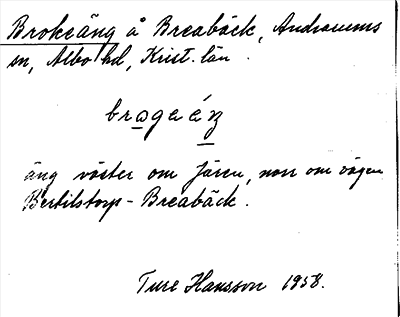 Brokeäng å Breabäck, Andrarums
sn, Albo hd, Krist. län.
brogeéŋ
äng väster om Jären, norr om vägen
Bertilstorp - Breabäck.
Ture Hansson 1958.